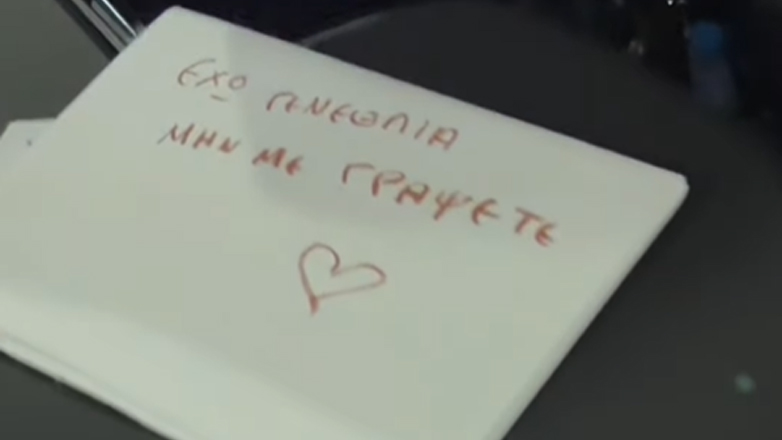 ΕΧΟ ΠΝΕΘΛΙΑ
ΜΗΝ ΜΕ ΓΡΑΨΕΤΕ